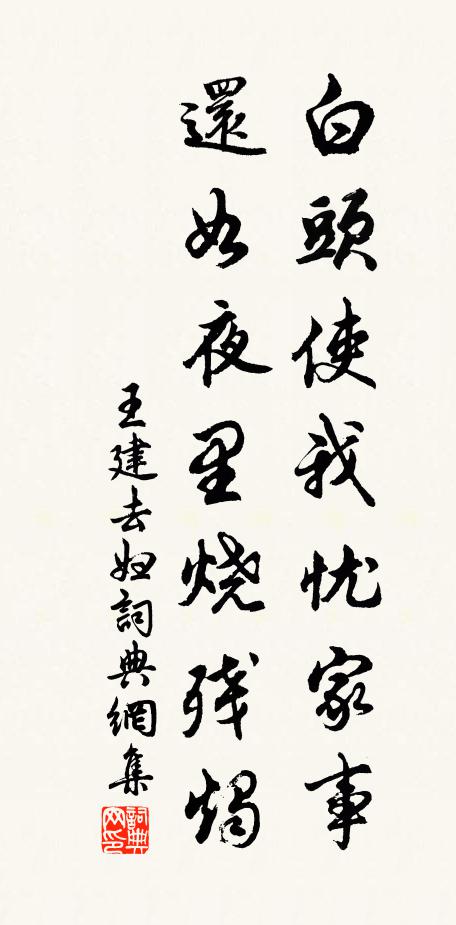 白頭使我忧家事
還如夜里烧残烛
王建去妇詞典網集
詞典网印